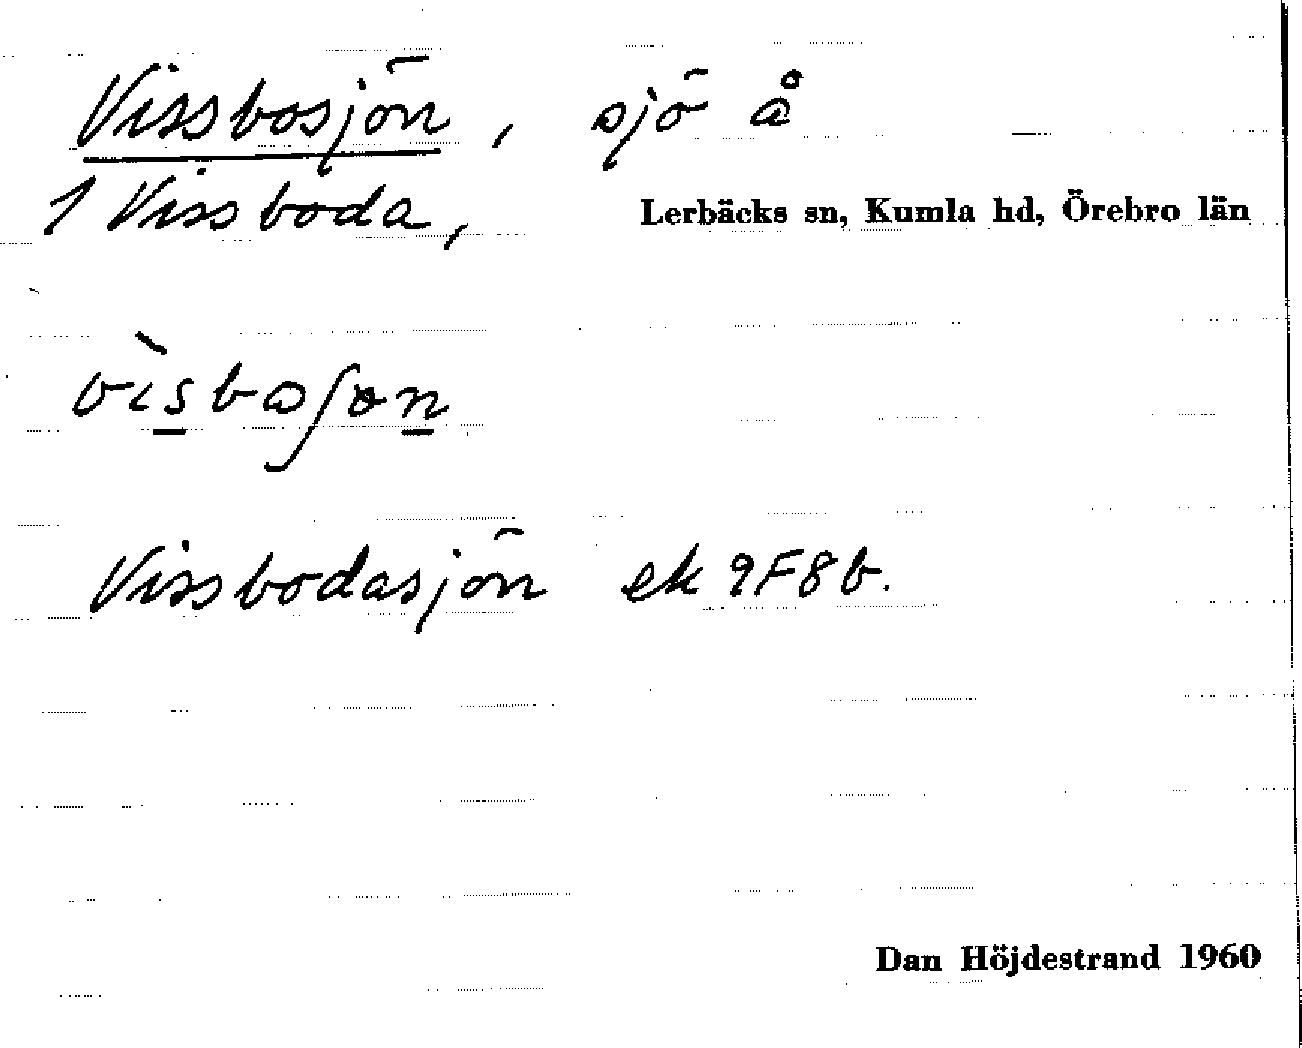 Vissbosjön, sjö å
1 Vissboda,
Lerbäcks sn, Kumla hd, Örebro län
vìsbaʃɵn
Vissbodasjön ek 9F8b.
Dan Höjdestrand 1960